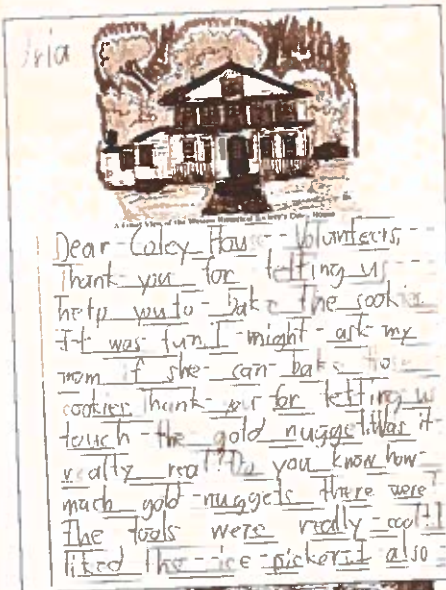 A Front View of the Weston Historical Society's Coley House
Dear Coley House Volunteers,
Thank you for letting us
help you to bake the cookies
It was fun. I might ask my
mom if she can bake
cookies Thank you for letting us
touch the gold nugget. Was it
really real? Do you know how
mach gold nuggets there were?
The tools were really cool! I
liked The ice picker. it also